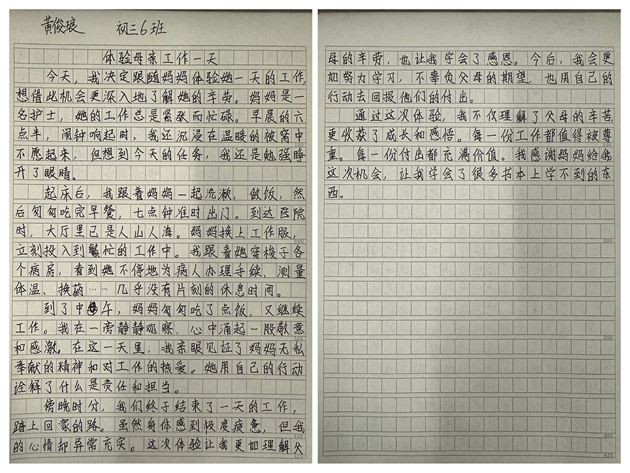 黄俊琅 初三6班
体验母亲工作一天
今天，我决定跟随妈妈体验她一天的工作，
想借此机会更深入地了解她的辛劳。妈妈是一
名护士，她的工作总是紧张而忙碌。早晨的六
点半，闹钟响起时，我还沉浸在温暖的被窝中
不愿起来，但想到今天的任务，我还是勉强睁
开了眼睛。
起床后，我跟着妈妈一起洗漱、做饭，然
后匆匆吃完早餐，七点钟准时出门。到达医院
时，大厅里已是人山人海。妈妈换上工作服，
立刻投入到繁忙的工作中。我跟着她穿梭于各
个病房，看到她不停地为病人办理手续、测量
体温、换药……几乎没有片刻的休息时间。
到了中午，妈妈匆匆吃了点饭，又继续
工作。我在一旁静静观察，心中涌起一股歉意
和感激。在这一天里，我亲眼见证了妈妈无私
奉献的精神和对工作的热爱。她用自己的行动
诠解了什么是责任和担当。
傍晚时分，我们终于结束了一天的工作，
踏上回家的路。虽然身体感到极度疲惫，但我
的心情却异常充实。这次体验让我更加理解父
母的辛劳，也让我学会了感恩。今后，我会更
加努力学习，不辜负父母的期望，也用自己的
行动去回报他们的付出。
通过这次体验，我不仅理解了父母的辛苦
更收获了成长和感悟。每一份工作都值得被尊
重。每一份付出都充满价值。我感谢妈妈给我
这次机会，让我学会了很多书本上学不到的东
西。